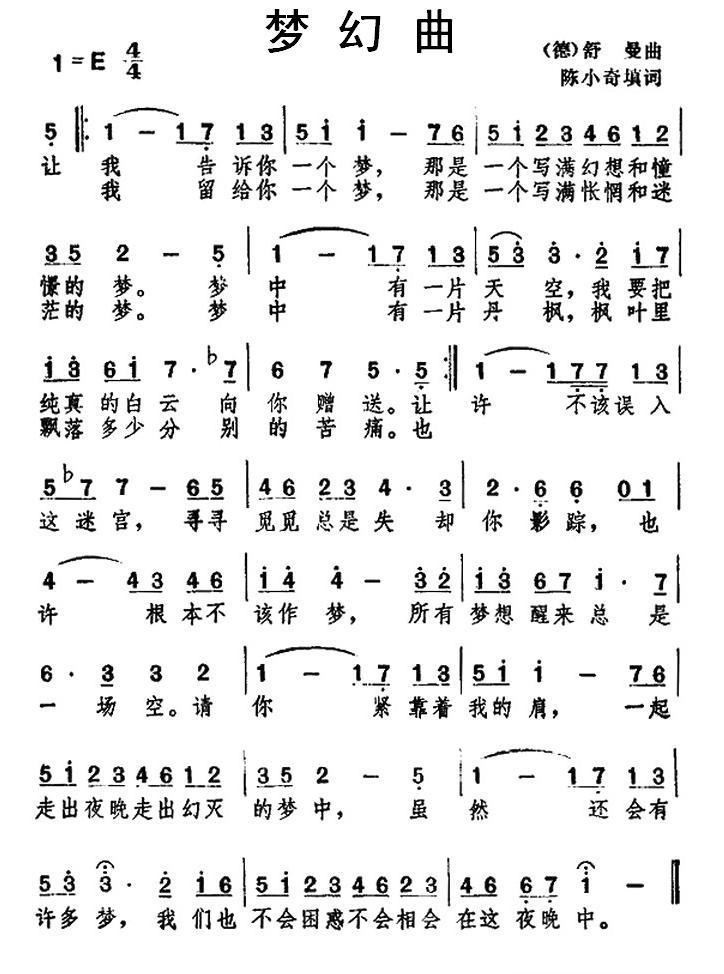 梦幻曲
1=E 4/4
（德）舒 曼曲
陈小奇填词
5 ‖: 1 - 1 7 1 3 | 5 1 1 - 7 6 | 5 1 2 3 4 6 1 2 |
让 我 告诉你 一个 梦， 那是 一个写满幻想和憧
我 留给你 一个 梦， 那是 一个写满怅惘和迷
3 5 2 - 5 | 1 - 1 7 1 3 | 5 3 3 · 2 1 7 |
憬的 梦。 梦 中 有一片 天 空，我 要把
茫的 梦。 梦 中 有一片 丹 枫，枫 叶里
1 3 6 1 7 · ♭7 | 6 7 5 · 5 :‖ 1 - 1 7 7 1 3 |
纯真 的白 云 向 你 赠 送。让 许 不该误入
飘落 多少 分 别 的 苦 痛。也
5 ♭7 7 - 6 5 | 4 6 2 3 4 · 3 | 2 · 6 6 0 1 |
这迷 宫， 寻寻 觅觅 总是 失 却 你 影 踪， 也
4 - 4 3 4 6 | 1 4 4 - 3 2 | 1 3 6 7 1 · 7 |
许 根 本不 该作 梦， 所有 梦想 醒来 总 是
6 · 3 3 2 | 1 - 1 7 1 3 | 5 1 1 - 7 6 |
一 场 空。请 你 紧 靠着 我的 肩， 一起
5 1 2 3 4 6 1 2 | 3 5 2 - 5 | 1 - 1 7 1 3 |
走出夜晚走出幻灭 的梦 中， 虽 然 还 会有
5 3 3 · 2 1 6 | 5 1 2 3 4 6 2 4 | 4 6 6 7 1 - ‖
许多 梦， 我 们也 不会困惑不会相会 在这 夜晚 中。